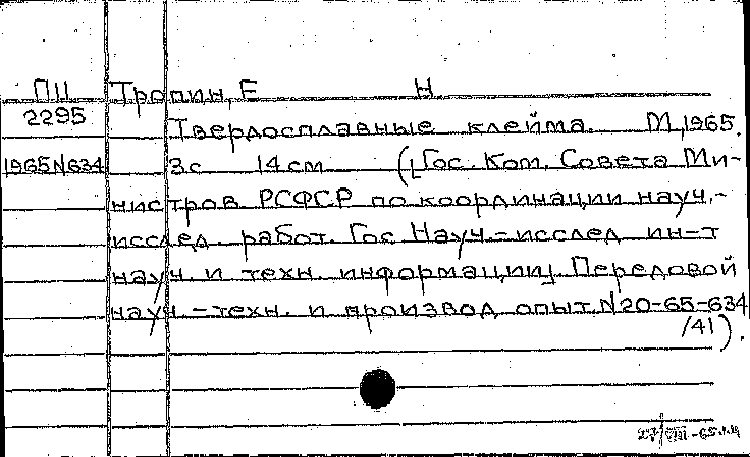 ПII Тропин, Е Н
2295
Твердосплавные клейма. М, 1965.
1965N634 3 с 14 см ([Гос. Ком. Совета Ми-
нистров РСФСР по координации науч.-
исслед. работ. Гос Науч.-исслед ин-т
науч. и техн. информации]. Передовой
науч.-техн. и производ опыт. N 20-65-634
/41).